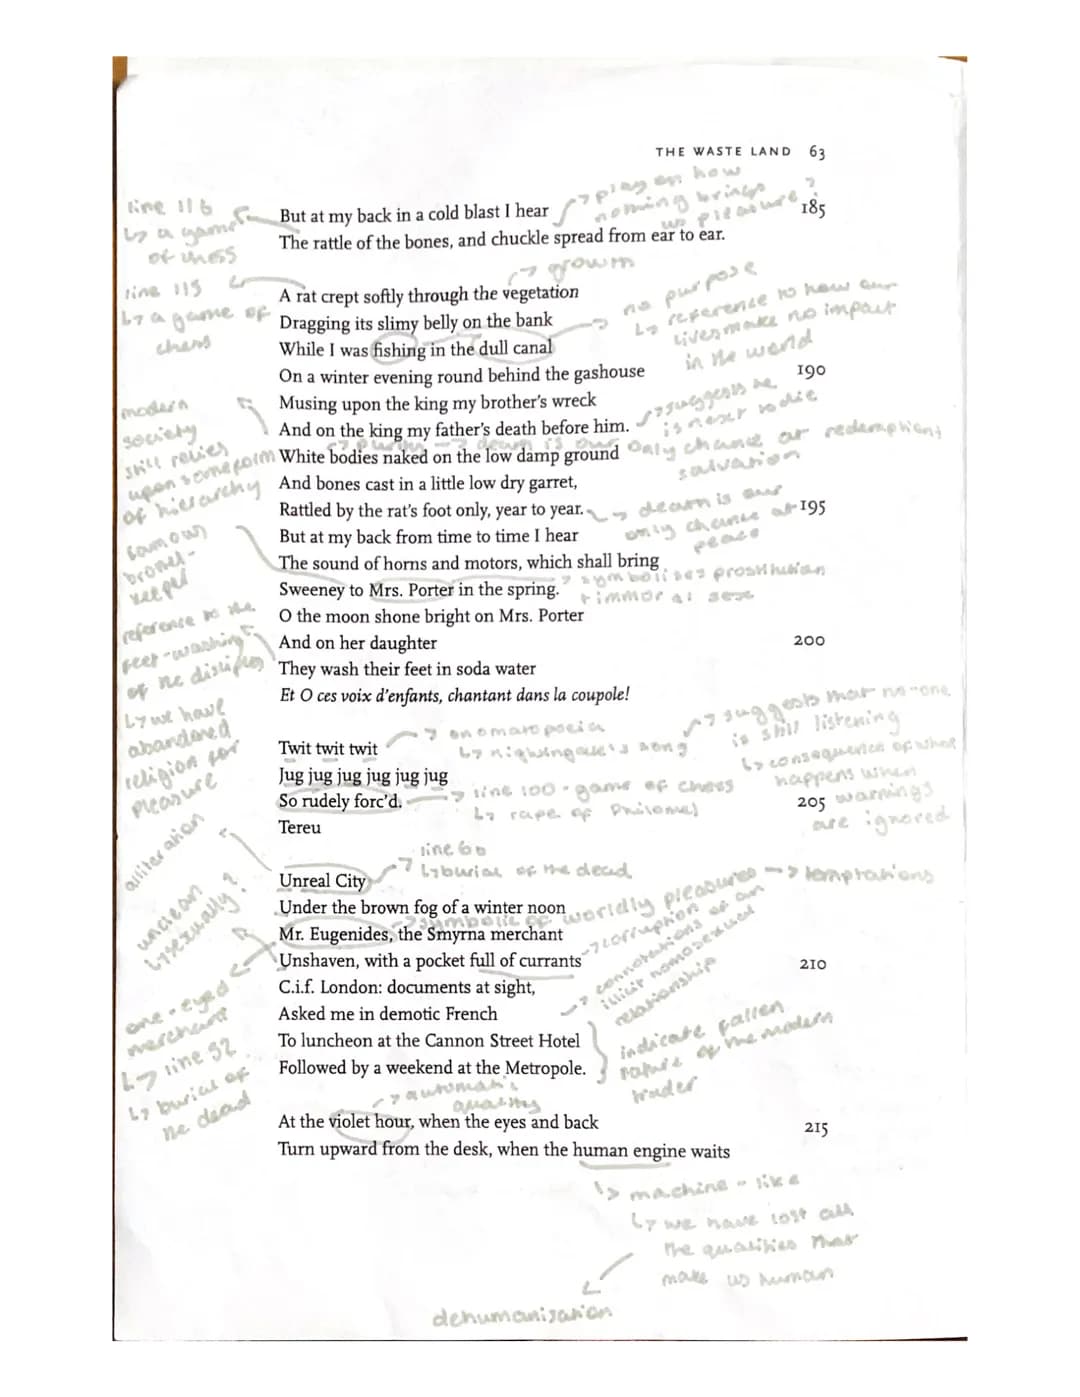 THE WASTE LAND 63
line 116
↳ a game
of chess
→ play on how
nothing brings
us pleasure?
But at my back in a cold blast I hear
185
The rattle of the bones, and chuckle spread from ear to ear.
line 115
↳ a game of
chess
→ growth
A rat crept softly through the vegetation
Dragging its slimy belly on the bank
While I was fishing in the dull canal
no purpose
↳ reference to how our
lives make no impact
in the world
On a winter evening round behind the gashouse
190
Musing upon the king my brother's wreck
And on the king my father's death before him.
→ suggests he
is next to die
modern
society
still relies
upon some form
of hierarchy
→ purity → death is our only chance at redemption/
salvation
White bodies naked on the low damp ground
And bones cast in a little low dry garret,
Rattled by the rat's foot only, year to year.
195
→ death is our
only chance at
peace
But at my back from time to time I hear
The sound of horns and motors, which shall bring
Sweeney to Mrs. Porter in the spring.
→ symbolises prostitution
+ immoral sex
famous
brothel-
keeper
O the moon shone bright on Mrs. Porter
And on her daughter
200
They wash their feet in soda water
Et O ces voix d'enfants, chantant dans la coupole!
reference to the
feet-washing
of the disciples
↳ we have
abandoned
religion for
pleasure
→ onomatopoeia
↳ nightingale's song
→ suggests that no-one
is still listening
↳ consequences of what
happens when
warnings
are ignored
Twit twit twit
Jug jug jug jug jug jug
So rudely forc'd.
205
→ line 100 - game of chess
↳ rape of Philomel
Tereu
alliteration
line 60
↳ burial of the dead
Unreal City
Under the brown fog of a winter noon
→ symbolic of worldly pleasures → temptations
Mr. Eugenides, the Smyrna merchant
Unshaven, with a pocket full of currants
210
→ corruption of our
unclean
↳ sexually?
C.i.f. London: documents at sight,
Asked me in demotic French
→ connotations of an
illicit homosexual
relationship
To luncheon at the Cannon Street Hotel
Followed by a weekend at the Metropole.
indicate fallen
nature of the modern
trader
one-eyed
merchant
↳ line 52
↳ burial of
the dead
→ automatic
quality
At the violet hour, when the eyes and back
215
Turn upward from the desk, when the human engine waits
↳ machine-like
↳ we have lost all
the qualities that
make us human
dehumanisation